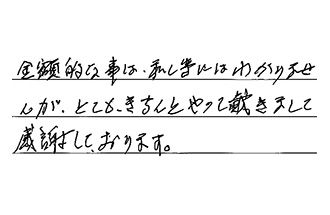 金額的な事は、私し等にはわかりませ
んが、とても、きちんとやって戴きまして
感謝して、おります。